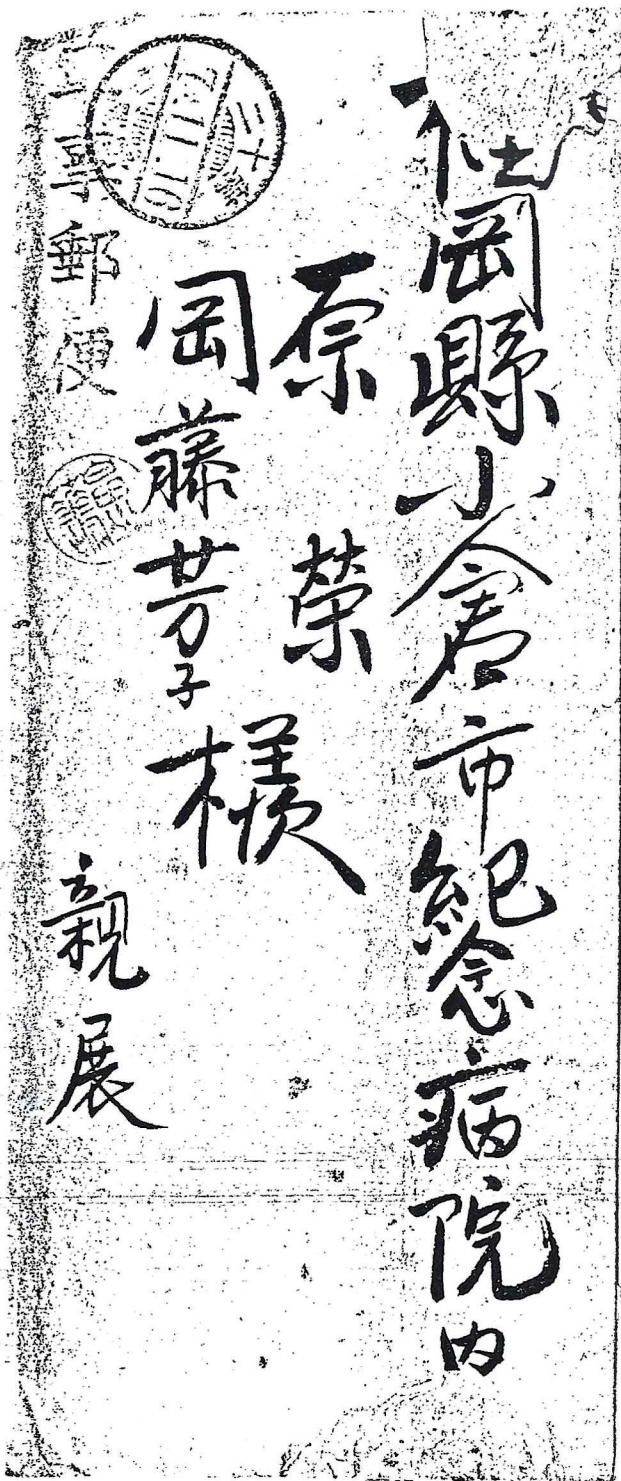 岡縣小倉市紀念病院内
原 榮
岡藤芳子様
親展
郵便